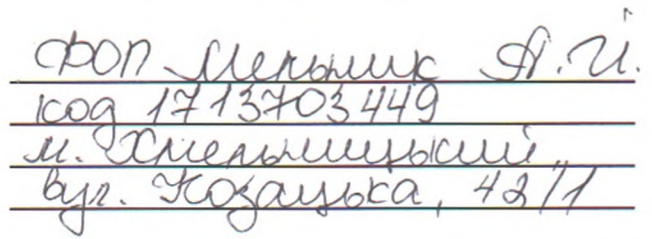 ФОП Мельник А. Й.
код 1713703449
м. Хмельницький,
вул. Козацька, 42/1